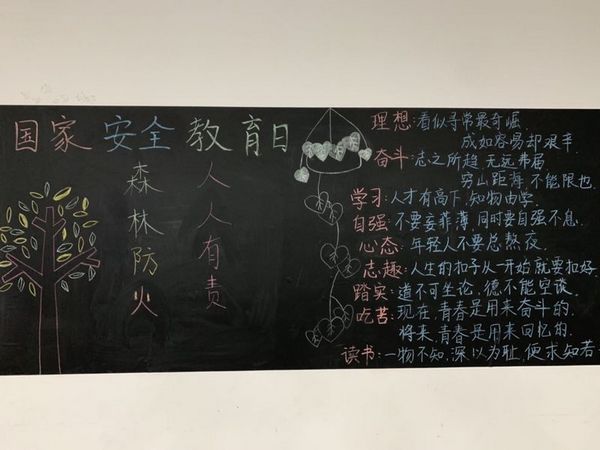 国家安全教育日
森林防火
人人有责
理想:看似寻常最奇崛,
成如容易却艰辛.
奋斗:志之所趋,无远弗届
穷山距海,不能限也.
学习:人才有高下,知物由学.
自强:不要妄菲薄,同时要自强不息.
心态:年轻人不要总熬夜.
志趣:人生的扣子从一开始就要扣好.
踏实:道不可坐论,德不能空谈.
吃苦:现在,青春是用来奋斗的.
将来,青春是用来回忆的.
读书:一物不知,深以为耻,便求知若